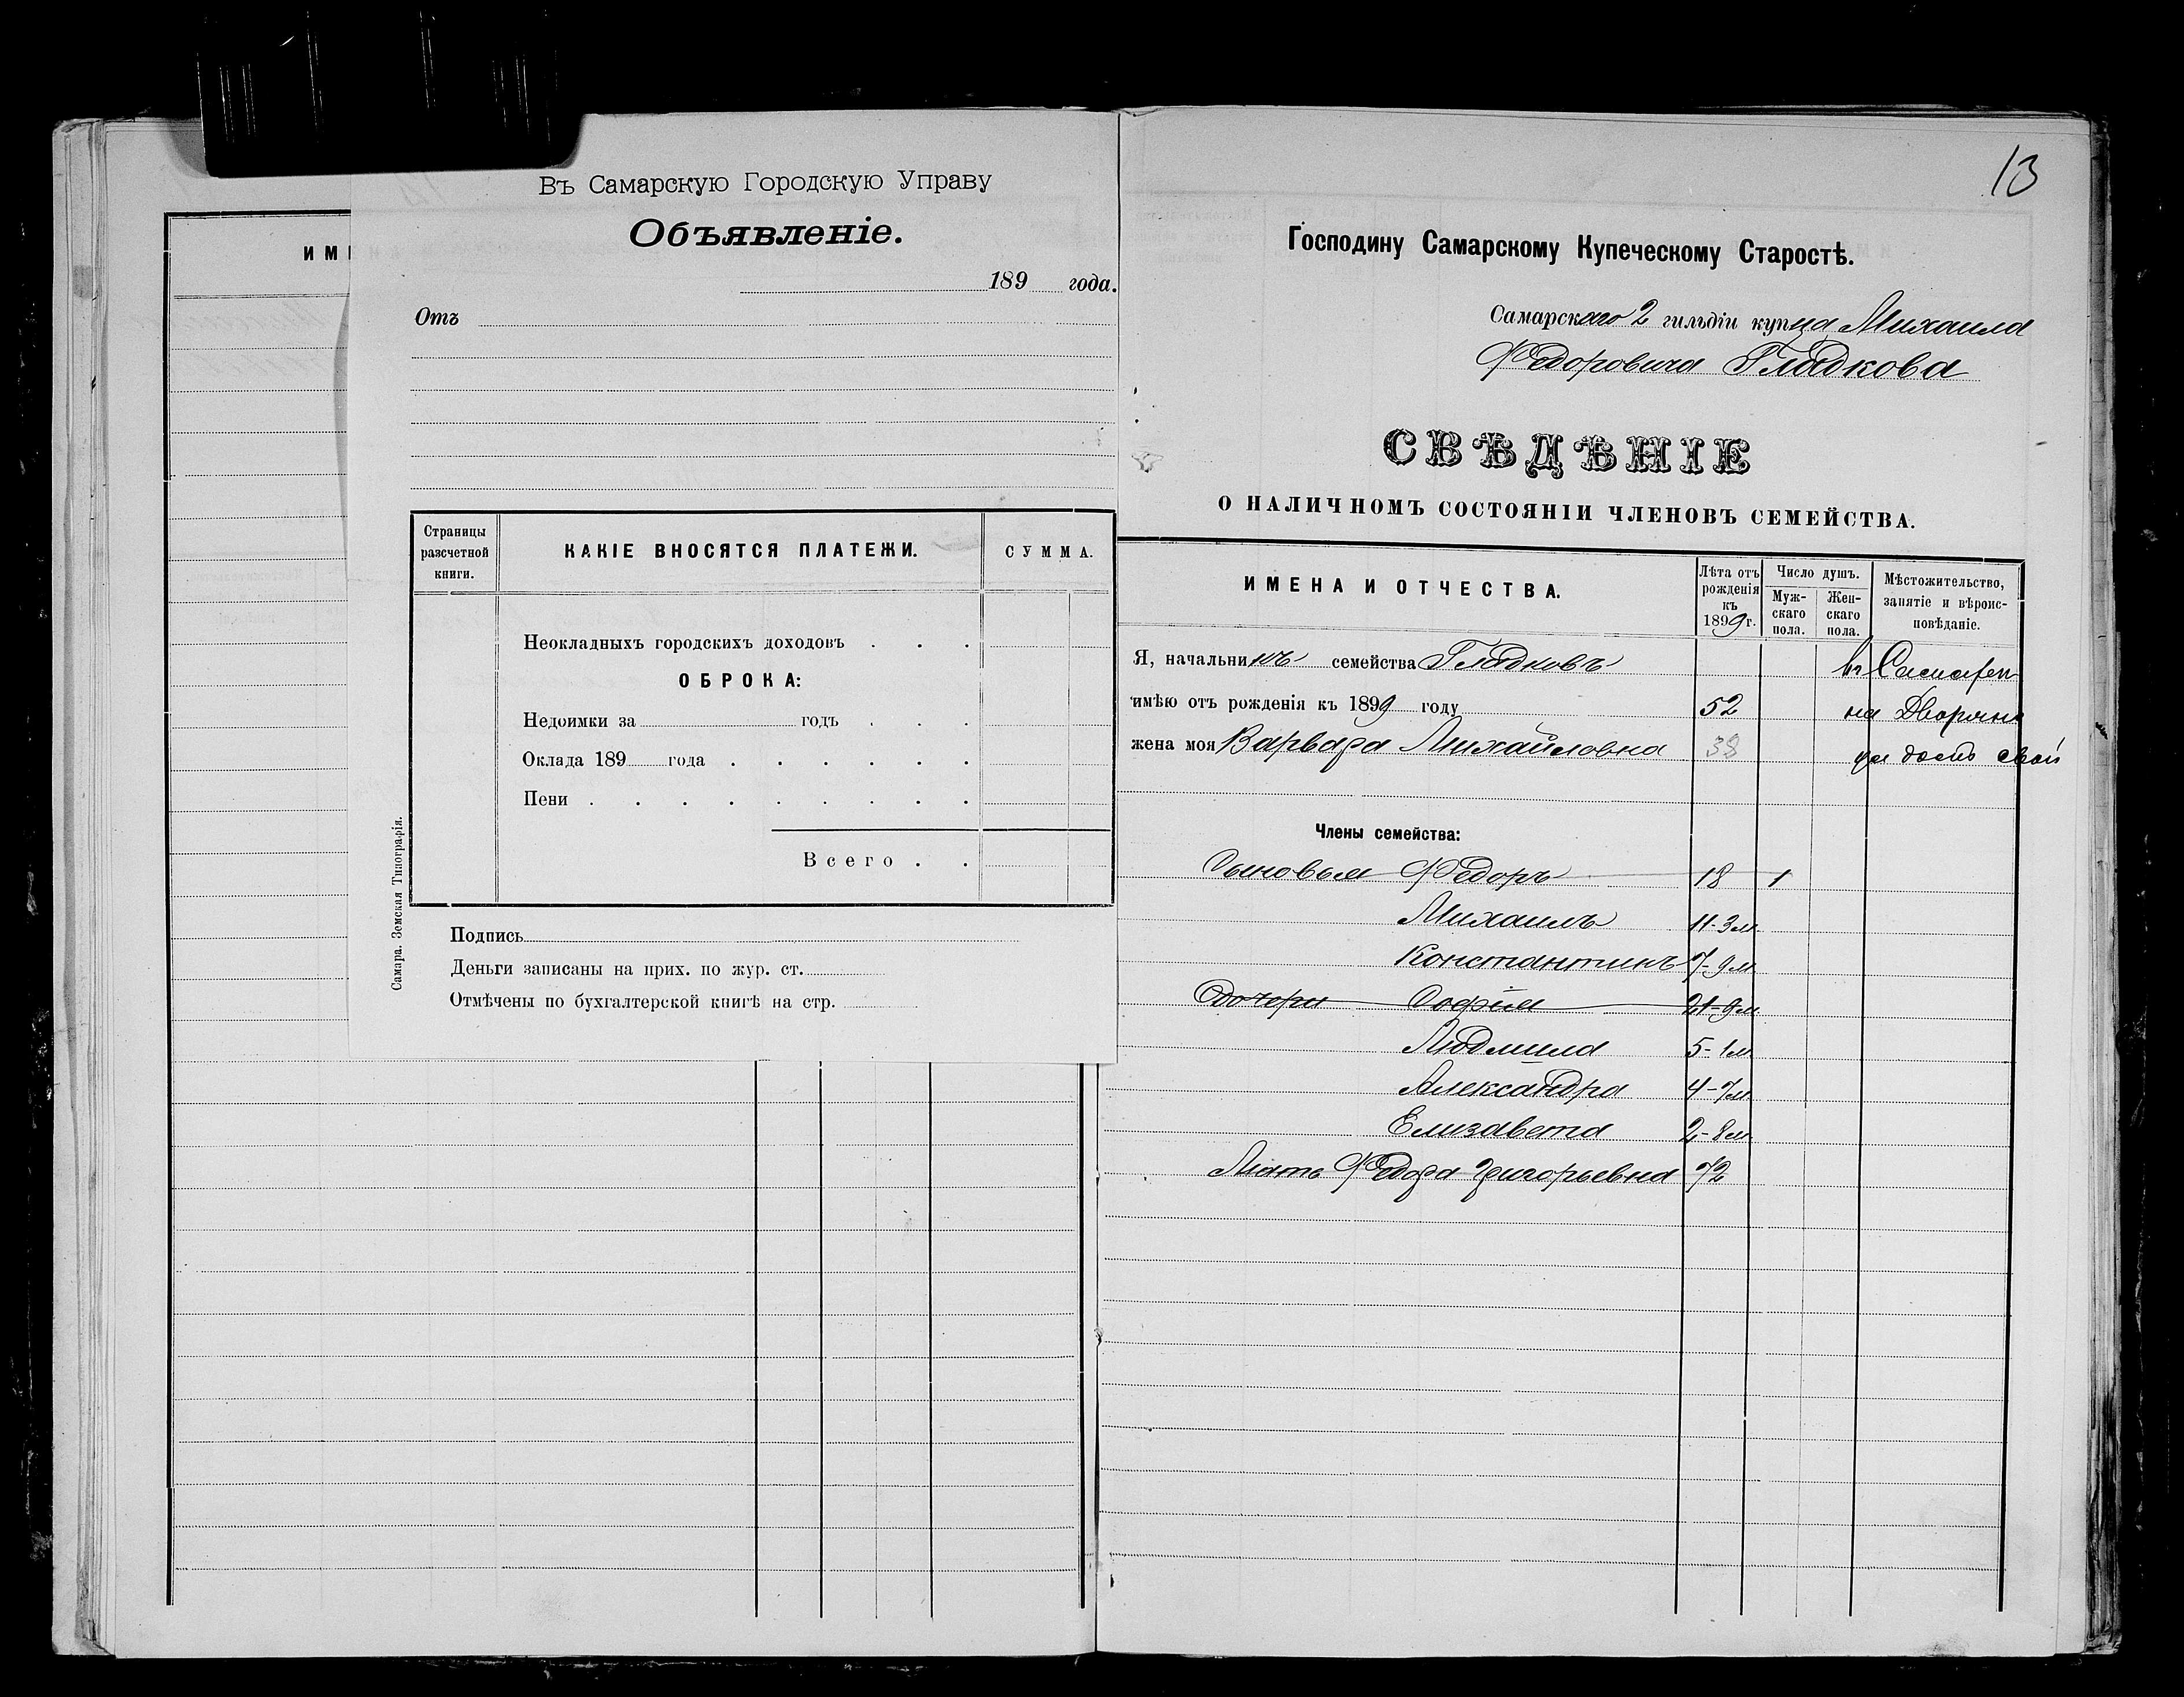 ИМ
Въ Самарскую Городскую Управу
Объявленіе.
189 года.
Отъ
Страницы разсчетной книги.
КАКІЕ ВНОСЯТСЯ ПЛАТЕЖИ.
СУММА.
Неокладныхъ городскихъ доходовъ . . .
ОБРОКА:
Недоимки за годъ . . .
Оклада 189 года . . . . . .
Пени . . . . . . . . .
Всего . .
Самара. Земская Типографія.
Подпись
Деньги записаны на прих. по жур. ст.
Отмѣчены по бухгалтерской книгѣ на стр.
13
Господину Самарскому Купеческому Старостѣ.
Самарскаго 2 гильдіи купца Михаила
Федоровича Гладкова
СВѢДѢНІЕ
О НАЛИЧНОМЪ СОСТОЯНІИ ЧЛЕНОВЪ СЕМЕЙСТВА.
ИМЕНА И ОТЧЕСТВА.
Лѣта отъ рожденія къ 1899 г.
Число душъ.
Мужскаго пола.
Женскаго пола.
Мѣстожительство, занятіе и вѣроисповѣданіе.
Я, начальникъ семейства Гладковъ въ Самарѣ
имѣю отъ рожденія къ 1899 году 52 на Дворянс
жена моя Варвара Михайловна 38 домъ свой
Члены семейства:
Сыновья Федоръ 18 1
Михаилъ 11-3м
Константинъ 7-9м
Дочери Софія 21-9м
Людмила 5-1м
Александра 4-7м
Елизавета 2-8м
Мать Федора Григорьевна 72